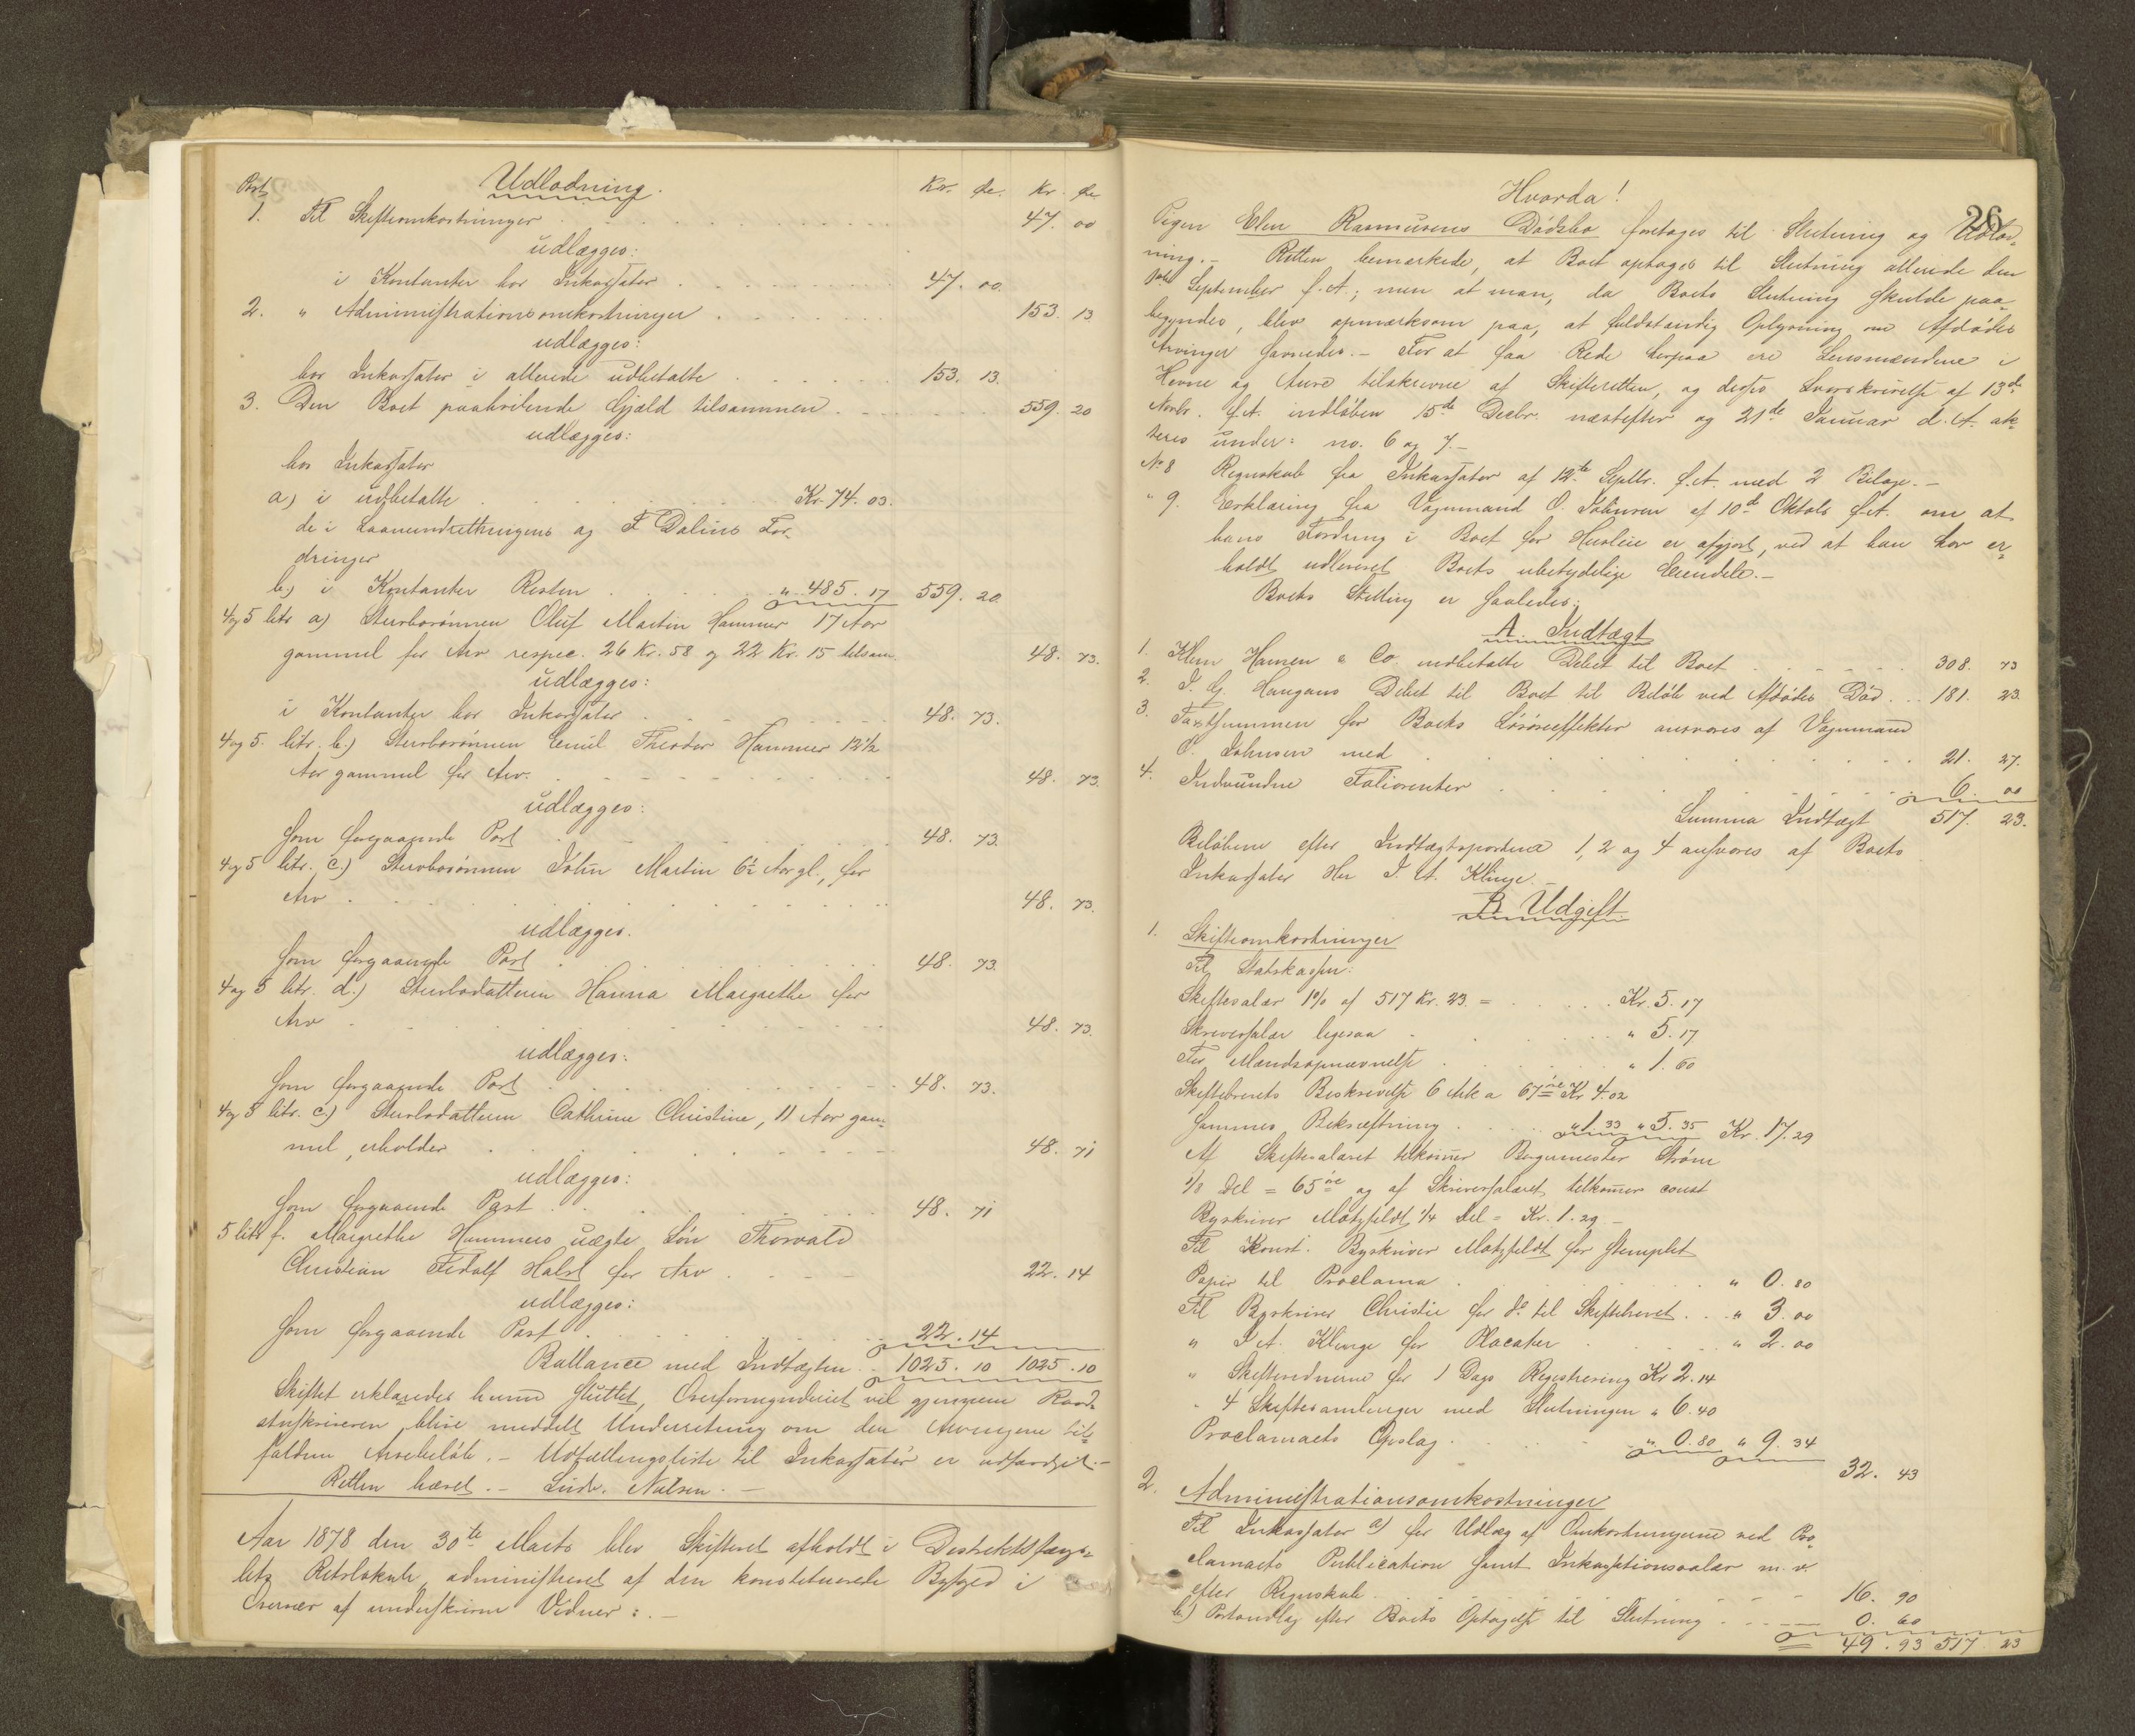 Post Udlodning. Kr. Øre. Kr. Øre
1. Til Skifteomkostninger 47. 00
udlægges:
i Kontanter hos Inkassator 47. 00.
2. " Administrationsomkostninger 153. 13.
udlægges:
hos Inkassator i allerede udbetalte 153. 13.
3. Den Boet paahvilende Gjæld tilsammen 559. 20
udlægges:
hos Inkassator
a) i udbetalte Kr. 74. 03.
de i Laaneindretningens og F Dalins For-
dringer
b) i Kontanter Resten " 485. 17 559. 20.
4 og 5 litr a) Stervbosønnen Oluf Martin Hammer 17 Aar
gammel for Arv respec. 26 Kr. 58 og 22 Kr. 15 tilsam. 48. 73.
udlægges:
i Kontanter hos Inkassator 48. 73.
4 og 5. litr. b.) Stervbosønnen Emil Theodor Hammer 12½
Aar gammel for Arv. 48. 73.
udlægges:
som foregaaende Post 48. 73.
4 og 5 litr. c.) Stervbosønnen John Martin 6½ Aar gl., for
Arv 48. 73.
udlægges.
som forgaaende Post 48. 73.
4 og 5 litr. d.) Stervbodatteren Hanna Margrethe for
Arv 48. 73.
udlægges:
som forgaaende Post 48. 73.
4 og 5 litr. e) Stervbodatteren Cathrine Christine, 11 Aar gam-
mel, erholder 48. 71
udlægges:
som forgaaende Post 48. 71
5 litr f. Margrethe Hammers uægte Søn Thorvald
Christian Fidolf Halst for Arv 22. 14
udlægges:
som forgaaende Post 22. 14
Ballance med Indtægten 1025. 10 1025. 10
Skiftet erklæredes hermed sluttet, Overformynderiet vil gjennem Raad-
stuskriveren blive meddelt Underretning om den Arvingene til-
faldne Arvebeløb. - Udtællingsliste til Inkassator er udfærdiget. -
Retten hævet. - Nielsen. -
Aar 1878 den 30te Marts blev Skifteret afholdt i Distriktsfængs-
lets Retslokale, administreret af den konstituerede Byfoged i
Overvær af underskrevne Vidner: -
26
Hvorda!
Pigen Elen Rasmusens Dødsbo foretages til Slutning og Udlod-
ning. - Retten bemærkede, at Boet optoges til Slutning allerede den
September f. A.; men at man, da Boets Slutning skulde paa-
begyndes, blev opmærksom paa, at fuldstændig Oplysning om Afdødes
Arvinger savnedes. - For at faa Rede herpaa ere Lensmændene i
Hevne og Aure tilskrevne af Skifteretten, og disses Svarskrivelse af 13de
Novbr. f. A. indløben 15de Decbr. næstefter og 21de Januar d. A. ak-
teres under: no. 6 og 7. -
No 8 Regnskab fra Inkassator af 12te Septbr. f. A. med 2 Bilage. -
" 9. Erklæring fra Vognmand O. Johnsen af 10de Oktob f. A. om at
hans Fordring i Boet for Husleie er afgjort, ved at han har er-
holdt udleveret Boets ubetydelige Eiendele. -
Boets Stilling er saaledes:
A. Indtægt
1. Klem Hansen & Co. indbetalte Debet til Boet 308. 73
2. I. G. Haugans Debet til Boet til Beløb ved Afdødes Død 181. 23.
3. Taxtsummen for Boets Løsøreeffekter ansvares af Vognmand
O. Johnsen med 21. 27.
4. Indvundne Foliorenter 6. 00
Summa Indtægt 517. 23.
Beløbene efter Indtægtsposterne 1, 2 og 4 ansvares af Boets
Inkassator Her I. A. Klinge. -
B. Udgift
1. Skifteomkostninger
Til Statskassen:
Skiftesalær 1% af 517 Kr. 23. = Kr. 5. 17
Skriversalær ligesaa " 5. 17
For Mandsopnævnelse " 1. 60
Skiftebrevets Beskrivelse 6 Ark a 67 øre Kr 4. 02
Sammes Bekræftning " 1. 33 " 5. 35 Kr. 17. 29
Af Skiftesalæret tilkommer Borgermester Strøm
1/8 Del = 65 øre og af Skriversalæret tilkommer const
Byskriver Motzfeldt 1/4 Del = Kr. 1. 29 -
Til Konst. Byskriver Motzfeldt for stemplet
Papir til Proclama " 0. 80
Til Byskriver Christie for do til Skiftebrevet " 3. 00
" I A. Klinge for Placater " 2. 00
" Skiftevidnerne for 1 Dags Registrering Kr 2. 14
" 4 Skiftesamlinger med Slutningen " 6. 40
Proclamaets Opslag " 0. 80 " 9. 34
32. 43
2. Administrationsomkostninger
Til Inkassator a) for Udlæg af Omkostningerne ved Pro-
clamaets Publication samt Inkassationssalær m. v.
efter Regnskab 16. 90
b.) Portoudlæg efter Boets Optagelse til Slutning 0. 60
49. 93 517. 23